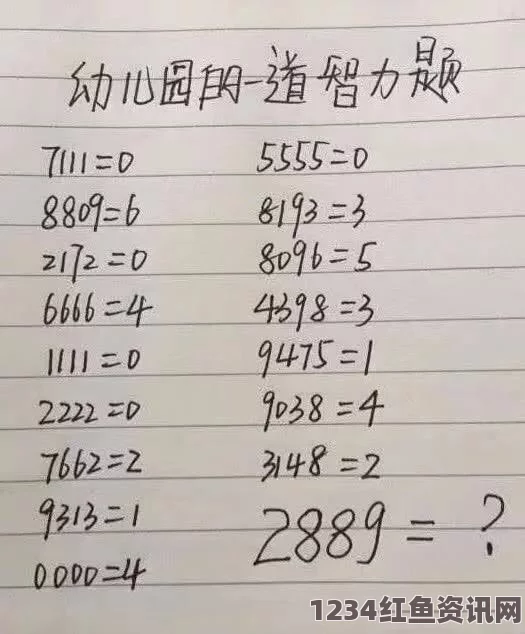 幼儿园的一道智力题
7111=0 5555=0
8809=6 8193=3
2172=0 8096=5
6666=4 4398=3
1111=0 9475=1
2222=0 9038=4
7662=2 3148=2
9313=1 2889=?
0000=4
1234红鱼资讯网